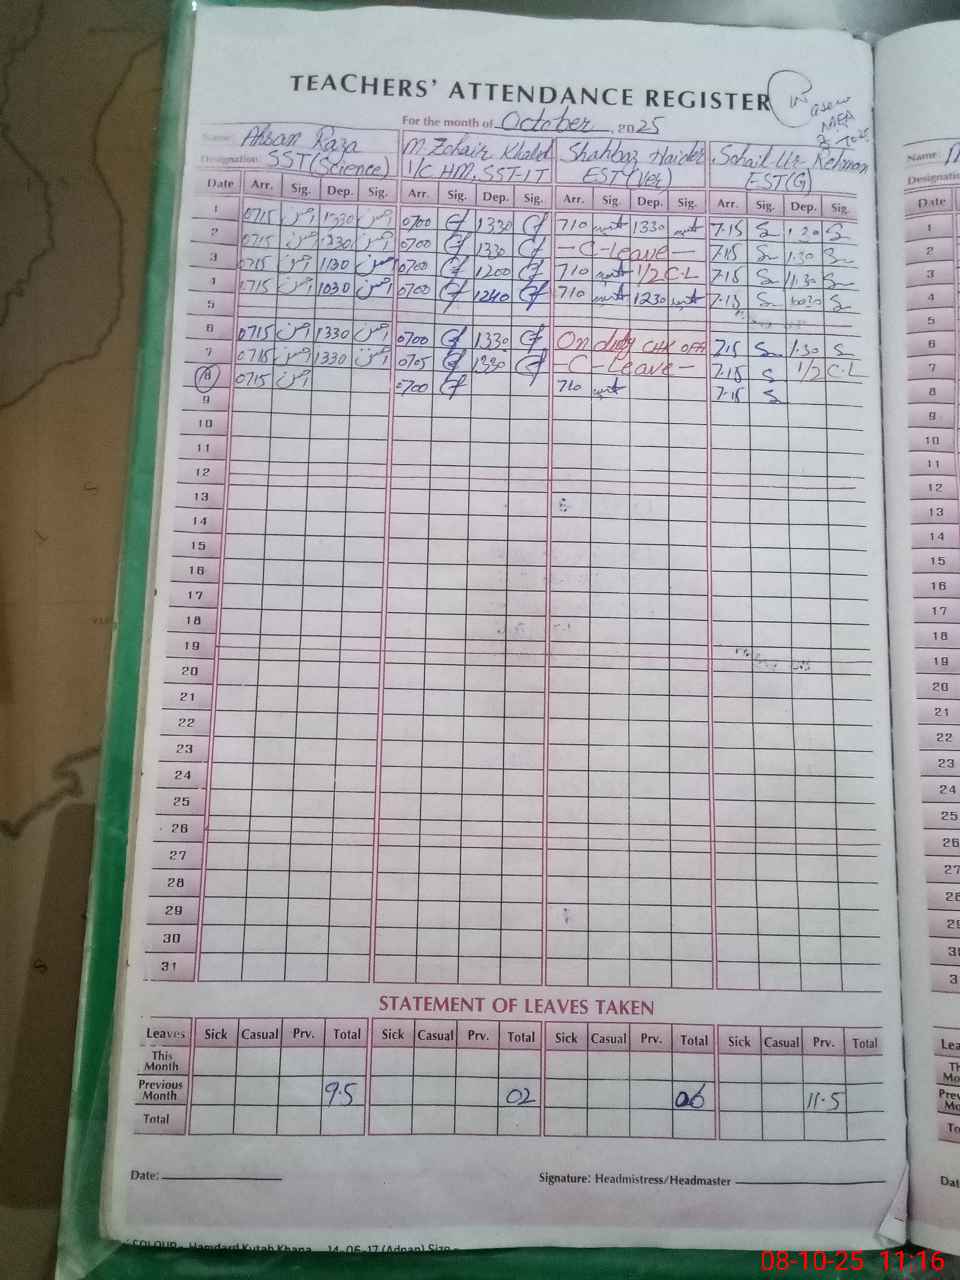 TEACHERS' ATTENDANCE REGISTER
For the month of October, 2025
Name: Ahsan Raza M. Zohaib Khalid Shahbaz Haider Sohail-Ur-Rehman
Designation: SST(Science) I/C HM. SST-IT EST(Vet) EST(G)
Date Arr. Sig. Dep. Sig. Arr. Sig. Dep. Sig. Arr. Sig. Dep. Sig. Arr. Sig. Dep. Sig.
1 0715 1330 0700 1330 710 1330 7-15
2 0715 1330 0700 1330 -C-leave- 7-15 1:30
3 0715 1130 0700 1200 710 1/2 C-L 7-15 11:30
4 0715 1030 0700 1240 710 1230 7-15
5
6 0715 1330 0700 1330 On duty 7-15 1:30
7 0715 1330 0705 1330 -C-Leave- 7-15 1/2 C-L
8 0715 0700 710 7-15
9
10
11
12
13
14
15
16
17
18
19
20
21
22
23
24
25
26
27
28
29
30
31
STATEMENT OF LEAVES TAKEN
Leaves Sick Casual Prv. Total Sick Casual Prv. Total Sick Casual Prv. Total Sick Casual Prv. Total
This Month
Previous Month 9.5 02 06 11.5
Total
Date: Signature: Headmistress/Headmaster
Hamdard Kutab Khana 14-06-17 (Adnan) Size
Name:
Designation
Date
1
2
3
4
5
6
7
8
9
10
11
12
13
14
15
16
17
18
19
20
21
22
23
24
25
26
08-10-25 11:16